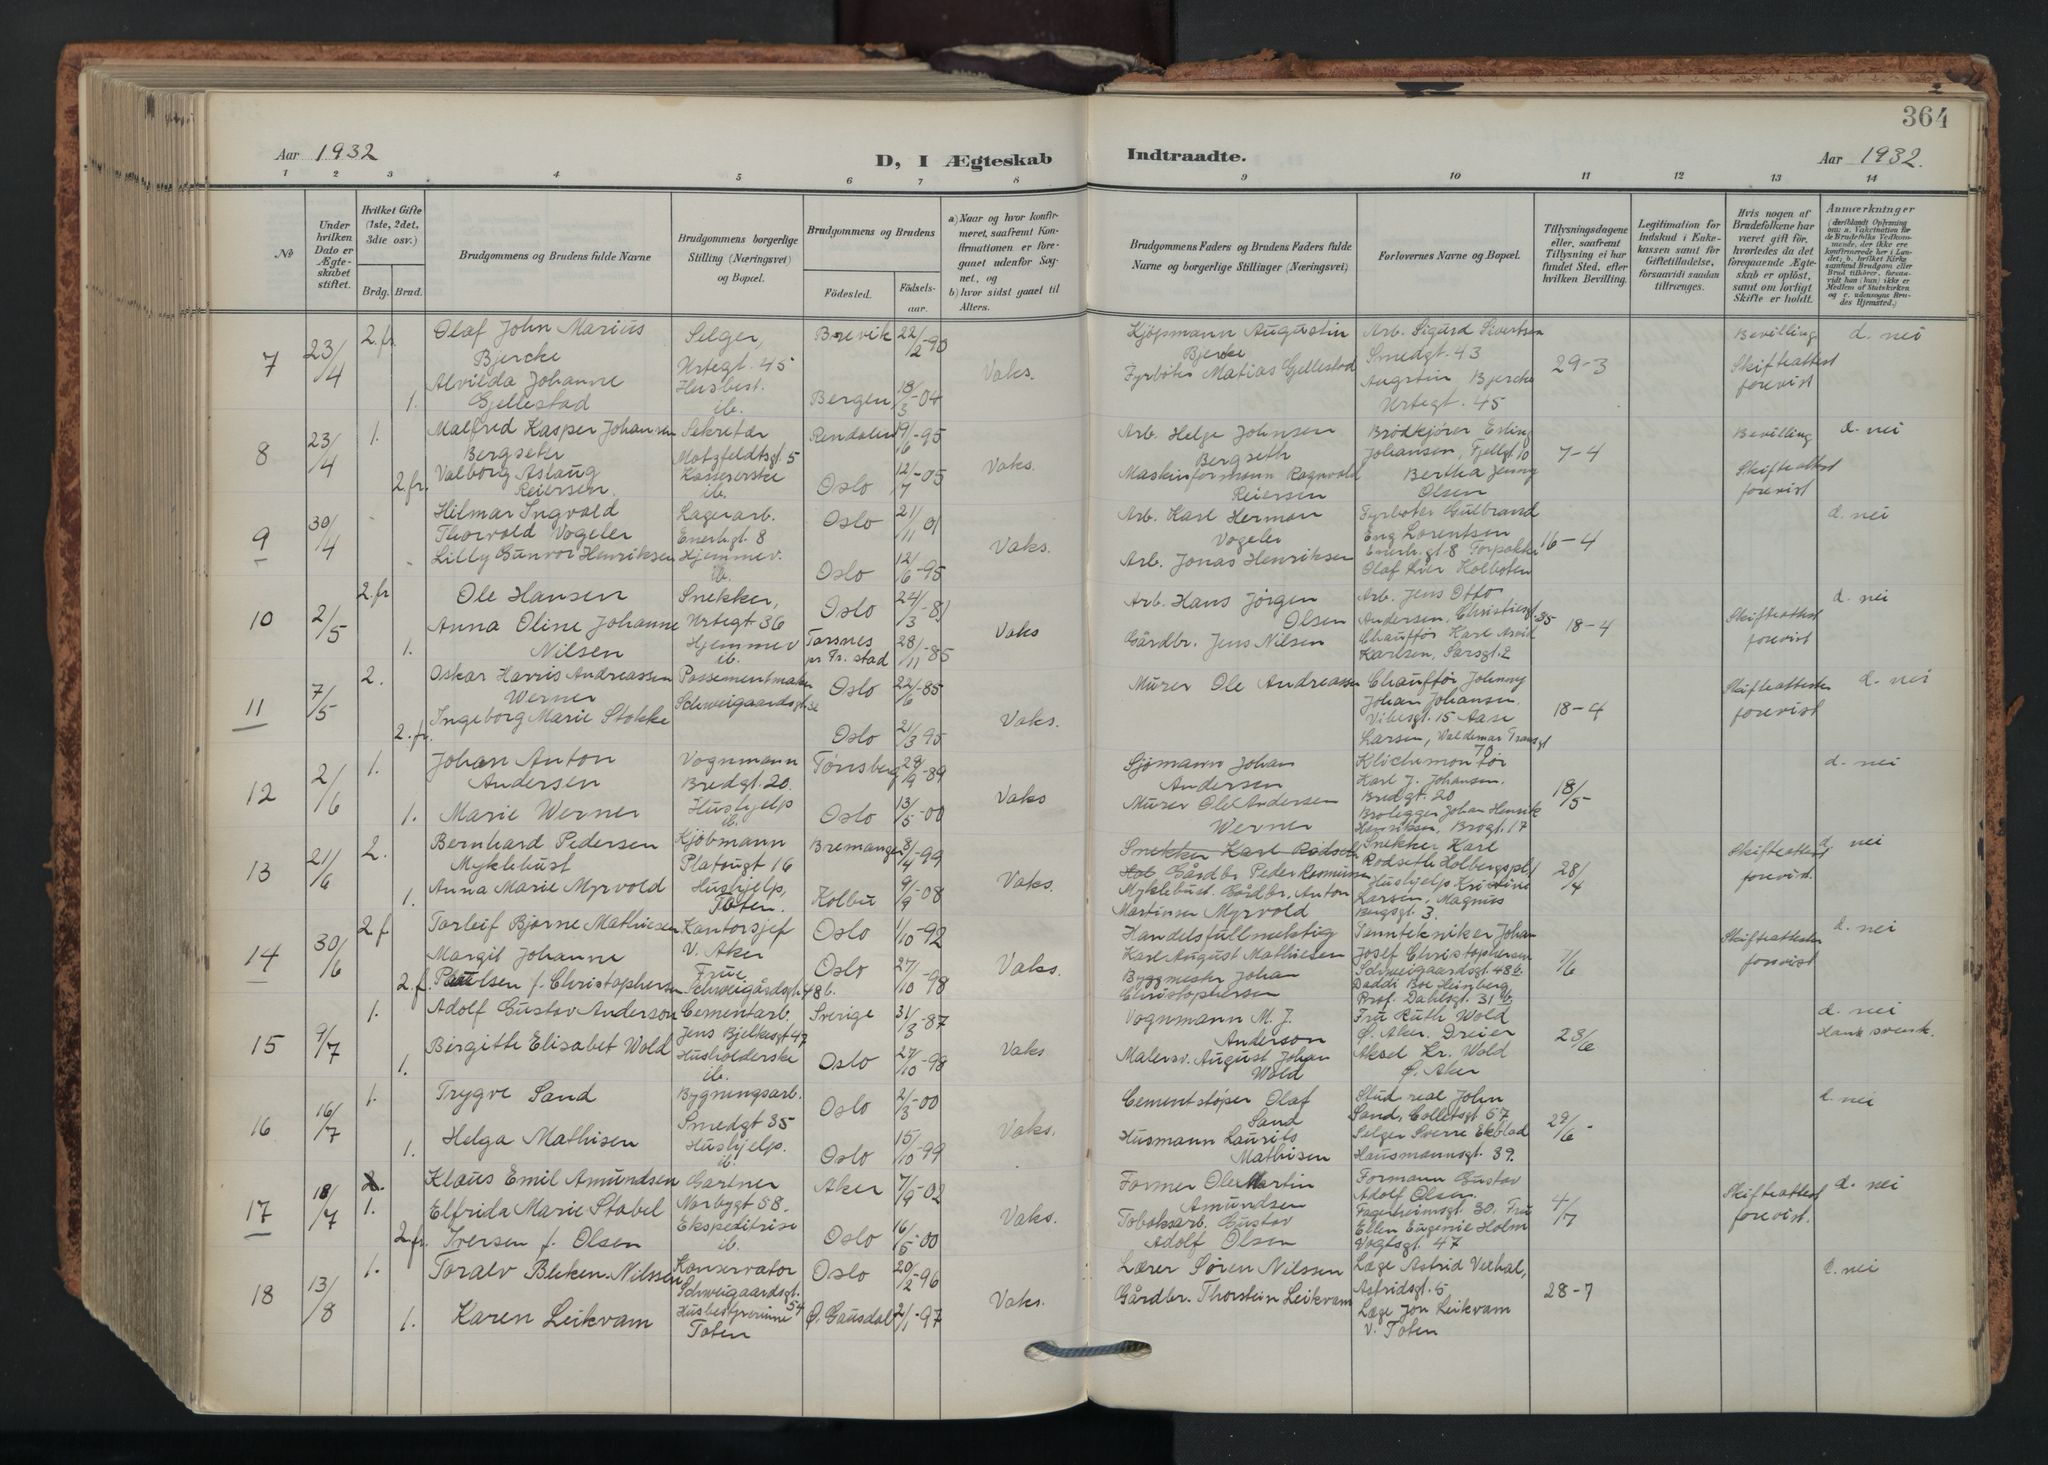 364
Aar 1932
D, I Ægteskab Indtraadte.
Aar 1932.
1 2 3 4 5 6 7 8 9 10 11 12 13 14
No
Under hvilken Dato er Ægteskabet stiftet.
Hvilket Gifte (1ste, 2det, 3die osv.)
Brdg. Brud.
Brudgommens og Brudens fulde Navne
Brudgommens borgerlige Stilling (Næringsvei) og Bopæl.
Brudgommens og Brudens
Födested. Födselsaar.
a) Naar og hvor konfirmeret, saafremt Konfirmationen er foregaaet udenfor Sognet, og
b) hvor sidst gaaet til Alters.
Brudgommens Faders og Brudens Faders fulde Navne og borgerlige Stillinger (Næringsvei)
Forlovernes Navne og Bopæl.
Tillysningsdagene eller, saafremt Tillysning ei har fundet Sted, efter hvilken Bevilling.
Legitimation for Indskud i Enkekassen samt for Giftetilladelse, forsaavidt saadan tiltrænges.
Hvis nogen af Brudefolkene har været gift för, hvorledes da det foregaaende Ægteskab er oplöst, samt om lovligt Skifte er holdt.
Anmærkninger
7 23/4 2.fr. Olaf John Marius Selger, Brevik 22/2-90 Kjöpmann Augustin Arb. Sigurd Sivertsen Bevilling d. nei
Bjercke Urtegt. 45 Vaks. Bjercke Smedgt. 43 29-3 Skifteattest
Alvilda Johanne Husbest. Fyrböter Matias Gjellestad Augustin Bjercke forevist
1. Gjellestad ib. Bergen 18/3-04 Urtegt. 45
8 23/4 1. Malfred Kasper Johansen Sekretær Rendalen 19/6-95 Arb. Helge Johnsen Brödkjörer Erling Bevilling d. nei
Bergseter Motzfeldtsgt 5 Vaks. Bergseth Johansen, Fjellgt 10 7-4 Skifteattest
Valborg Aslaug Kassererske Maskinformann Ragnvald Bertha Jenny forevist
2.fr. Reiersen ib. Oslo 12/7-05 Reiersen Olsen
9 30/4 Hilmar Ingvald Lagerarb. Oslo 21/11 01 Arb. Karl Herman Fyrböter Gulbrand d. nei
Thorvold Vogeler Enerhgt 8 Vaks. Vogeler Eng Lorentsen 16-4
Lilly Gunvor Henriksen Hjemmev. Arb. Jonas Henriksen Enerh.gt 8
ib. Oslo 12/6-95 Olaf Kolboten
10 2/5 2.fr Ole Hansen Snekker, Oslo 24/3-81 Arb. Hans Jörgen Arb. Jens Otto d. nei
Anna Oline Johanne Urtegt 36 Vaks Olsen Andersen, Christiesgt 35 18-4 Skifteattest
1. Nilsen Hjemmev Torsnes 28/11-85 Gårdbr. Jens Nilsen Chauffør Karl Arvid forevist
ib. pr Fr. stad Karlsen, Sarsgt. 2
11 7/5 2. Oskar Harris Andreassen Possementmaker Oslo 22/6-85 Murer Ole Andreassen Chauffør Johnny Skifteattester d. nei
Werner Schweigaardsgt Vaks. Johan Johansen 18-4 forevist
Ingeborg Marie Stokke Vibesgt. 15 Aase
2.fr. Oslo 21/3 95 Larsen, Waldemar Transgt 70
12 2/6 1. Johan Anton Vognmann Tönsberg 29/9-89 Sjømann Johan d. nei
Andersen Bredgt. 20 Vaks Andersen Karl J. Johansen. 18/5
Marie Werner Hushjelp Murer Ole Andersen Bredgt. 20
1. ib. Oslo 13/5-00 Werner Brolegger Johan Henrik
Henriksen, Brogt. 17
13 21/6 2. Bernhard Pedersen Kjöbmann Bremanger 8/4-99 Snekker Karl Rödseth Snekker Karl Skifteattest d. nei
Myklebust Platougt 16 Vaks. Gårdbr Peder Rasmussen Rödseth Holbergspl 28/4 forevist.
Anna Marie Myrvold Hushjelp, Myklebust. Gårdbr. Anton Hushjelp Kristine
1. Toten. Kolbu 9/9-08 Martinsen Myrvold Larsen, Magnus
Bergsgt. 3.
14 30/6 2.f Torleif Bjarne Mathiesen Kontorsjef Oslo 1/10-92 Handelsfullmektig Tanntekniker Johan Skifteattester d. nei
Margit Johanne V. Aker Vaks. Karl August Mathiesen Josef Christophersen 7/6 forevist
2.f. Paulsen f. Christophersen Frue Oslo 27/10-98 Byggmestr Johan Schweigaardsgt 48b.
Schweigårdsgt 48b. Christophersen Daddi Boe Heinberg
Prof. Dahlsgt. 31 b
15 9/7 1. Adolf Gustav Anderson Cementarb. Sverige 31/3-87 Vognmann M. J. Fru Ruth Wold d. nei
Jens Bjelkesgt 47 Anderson Ø. Aker. Dreier 23/6 Han svensk.
Birgithe Elisabet Wold Husholderske Vaks Malersv. August Johan Aksel Kr. Wold
1. ib. Oslo 27/10-98 Wold Ø. Aker
16 16/7 1. Trygve Sand Bygningsarb. Oslo 2/3-00 Cementstøper Olaf Stud real John d. nei
Smedgt 35 Vaks. Sand Sand, Colletsgt. 57 29/6
Helga Mathisen Hushjelp. Husmann Laurits Selger Sverre Ekblad
1. ib. Oslo 15/10-99 Mathisen Hausmannsgt. 39.
17 18/7 2. Klaus Emil Amundsen Gartner Aker 7/9-02 Former Ole Martin Formann Gustav d. nei
1. Elfrida Marie Stabel Norbygt 58. Vaks. Amundsen Adolf Olsen Skifteattest
Iversen f. Olsen Ekspeditrise Tobaksarb. Gustav Fagerheimsgt. 30. Fru 4/7 forevist.
2.fr. ib. Oslo 16/5-00 Adolf Olsen Ellen Eugenie Holm
Vogtsgt. 47
18 13/8 1. Toralv Bleken-Nilssen Konservator Oslo 20/2-96 Lærer Sören Nilssen Læge Astrid d. nei
Schweigaardsgt. 54 Vaks. Gårdbr. Thorstein Leikvam Astridsgt. 5 28-7
1. Karen Leikvam Husbestyrerinne Ø. Gausdal 2/1-97 Læge Jon Leikvam
Toten V. Toten